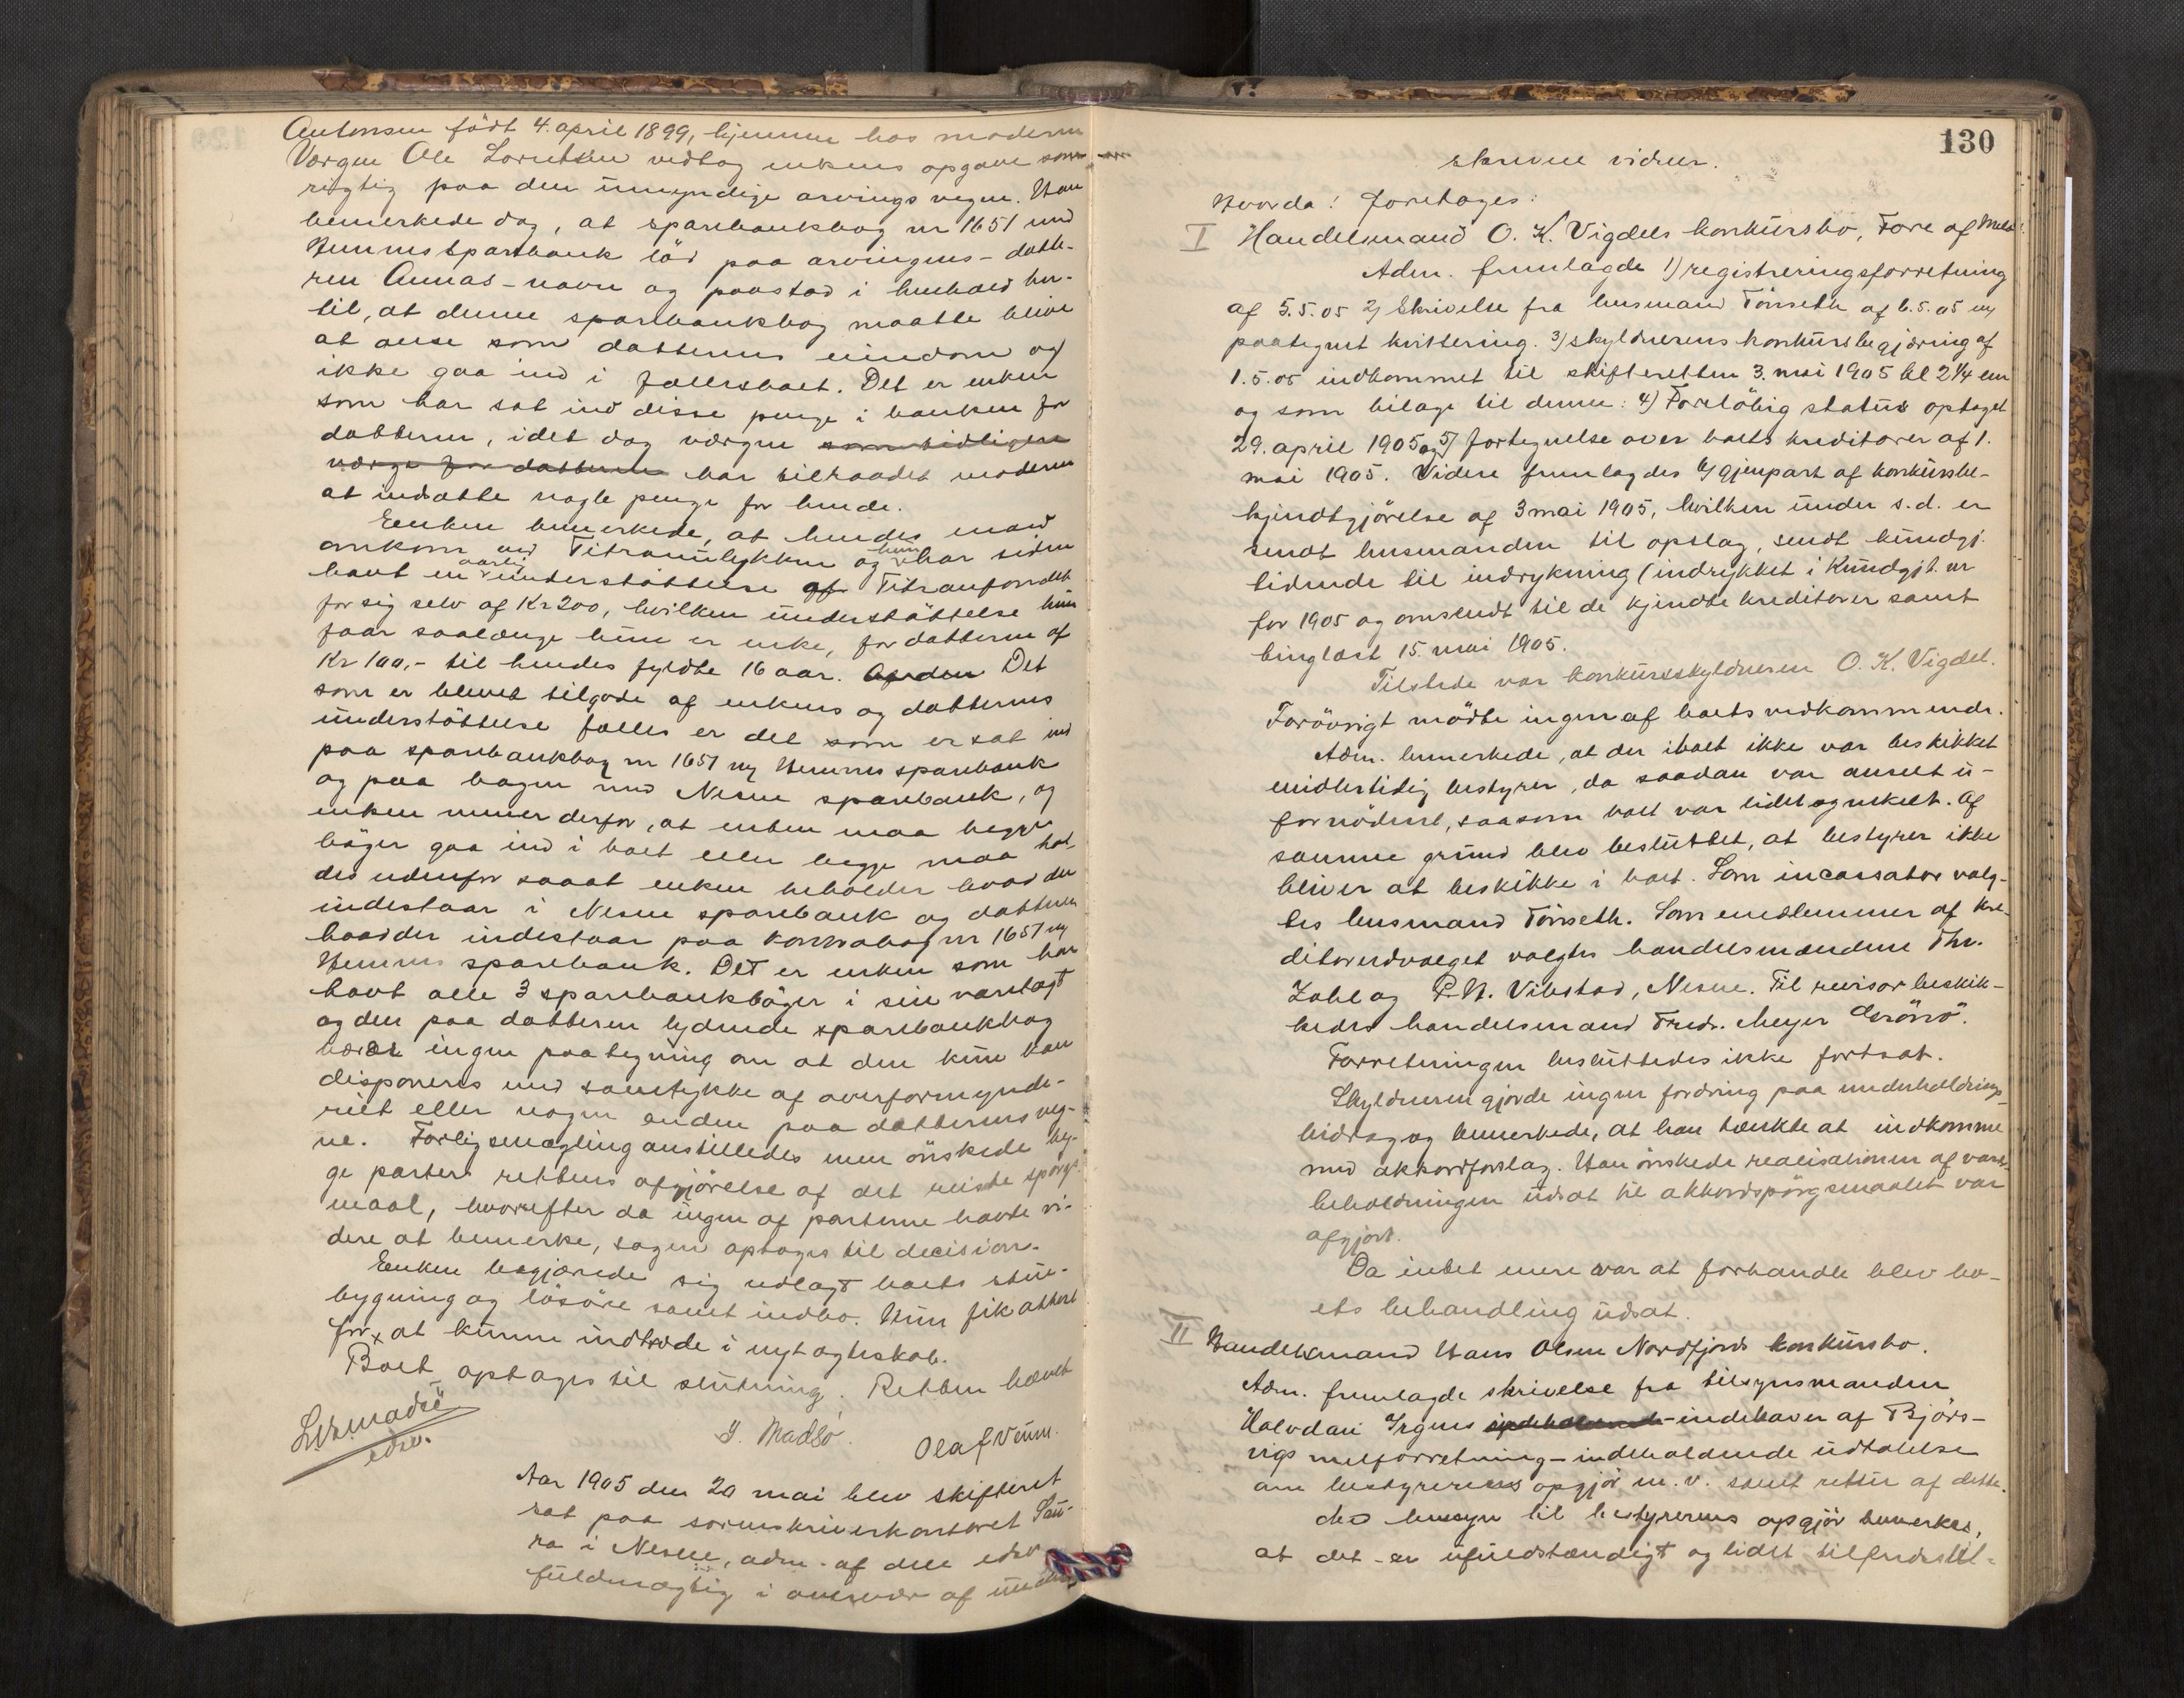 Antonsen födt 4. april 1899, hjemme hos moderen
Værgen Ole Lorntsen vedtog enkens opgave som
rigtig paa den umyndige arvings vegne. Han
bemerkede dog, at sparebankbog nr 1651 med
Hemnes sparebank löd paa arvingens - datte-
ren Annas - navn og paastod i henhold her-
til, at denne sparebankbog maatte blive
at anse som datterens eiendom og
ikke gaa ind i fællesboet. Det er enken
som har sat ind disse penge i banken for
datteren, idet dog værgen som tidligere
værge for datteren har tilraadet moderen
at indsætte nogle penge for hende.
Enken bemerkede, at hendes mand
omkom ved Titranulykken og hun har siden
havt en aarlig understöttelse af Titranfondet
for sig selv af Kr 200, hvilken understöttelse hun
faar saalænge hun er enke, for datteren af
Kr 100,- til hendes fyldte 16 aar. Af den Det
som er blevet tilgode af enkens og datterens
understöttelse fælles er det som er sat ind
paa sparebankbog nr 1651 mg Hemnes sparebank
og paa bogen med Nesne sparebank, og
enken mener derfor, at enten maa begge
böger gaa ind i boet eller begge maa hol-
des udenfor saaat enken beholder hvad der
indestaar i Nesne sparebank og datteren
hvad der indestaar paa kontrabog nr 1651 mg
Hemnes sparebank. Det er enken som har
havt alle 3 sparebankböger i sin varetægt
og den paa datteren lydende sparebankbog
bærer ingen paategning om at den kun kan
disponeres med samtykke af overformynde-
riet eller nogen anden paa datterens veg-
ne. Forligsmægling anstilledes men önskede beg-
ge parters rettens afgjörelse af det reiste spörgs-
maal, hvorefter da ingen af parterne havde vi-
dere at bemerke, sagen optages til decision.
Enken begjærede sig udlagt boets stue-
bygning og lösöre samt indbo. Hun fik attest
for, at kunne indtræde i nyt ægteskab.
Boet optages til slutning. Retten hævet
J. Madsö. Olaf Venm.
edsv.
Aar 1905 den 20 mai blev skifteret
sat paa sorenskriverkontoret Sau-
ra i Nesne, adm. af den edsv
fuldmægtig i overvær af under
130
skrevne vidner.
Hvorda! Foretoges:
I Handelsmand O. K. Vigdels konkursbo, Fore af Melö.
Adm. fremlagde 1) registreringsforretning
af 5.5.05 2) Skrivelse fra lensmand Tönseth af 6.5.05 mg
paategnet kvittering. 3) skyldnerens konkursbegjæring af
1.5.05 indkommet til skifteretten 3. mai 1905 kl 2 1/4 em
og som bilage til denne: 4) Foreløbig status optaget
29. april 1905 og 5) fortegnelse over boets kreditorer af 1.
mai 1905. Videre fremlagdes 6) gjenpart af konkursbe-
kjendtgjörelse af 3 mai 1905, hvilken under s.d. er
sendt lensmanden til opslag, sendt kundgj.
tidende til indrykning (indrykket i Kundgjt. nr
for 1905 og omsendt til de kjendte kreditorer samt
tinglæst 15. mai 1905.
Tilstede var konkursskyldneren O. K. Vigdel.
Foröovrigt mödte ingen af boets vedkommende.
Adm. bemerkede, at der i boet ikke var beskikket
midlertidig bestyrer, da saadan var anseet u-
fornödent, saasom boet var lidet og enkelt. Af
samme grund blev besluttet, at bestyrer ikke
bliver at beskikke i boet. Som incassator valg-
tes lensmand Tönseth. Som medlemmer af kre-
ditorudvalget valgtes handelsmændene Thr.
Zahl og P. N. Vibstad, Nesne. Til revisor beskik-
kedes handelsmand Fredr. Meyer Grönö.
Forretningen besluttedes ikke fortsat.
Skyldneren gjorde ingen fordring paa underholdnings-
bidrag og bemerkede, at han tænkte at indkomme
med akkordforslag. Han önskede realisationen af vare-
beholdningen udsat til akkordspörgsmaalet var
afgjort.
Da intet mere var at forhandle blev bo-
ets behandling udsat.
II Handelsmand Hans Olsen Nordfjords konkursbo.
Adm. fremlagde skrivelse fra tilsynsmanden
Halvdan Irgens indeholdende - indehaver af Bjørs-
vigs melforretning - indeholdende udtalelse
om bestyrerens opgjör m. v. samt retur af dette.
Med hensyn til bestyrerens opgjör bemerkes,
at det er ufuldstændigt og lidet tilfredsstil-